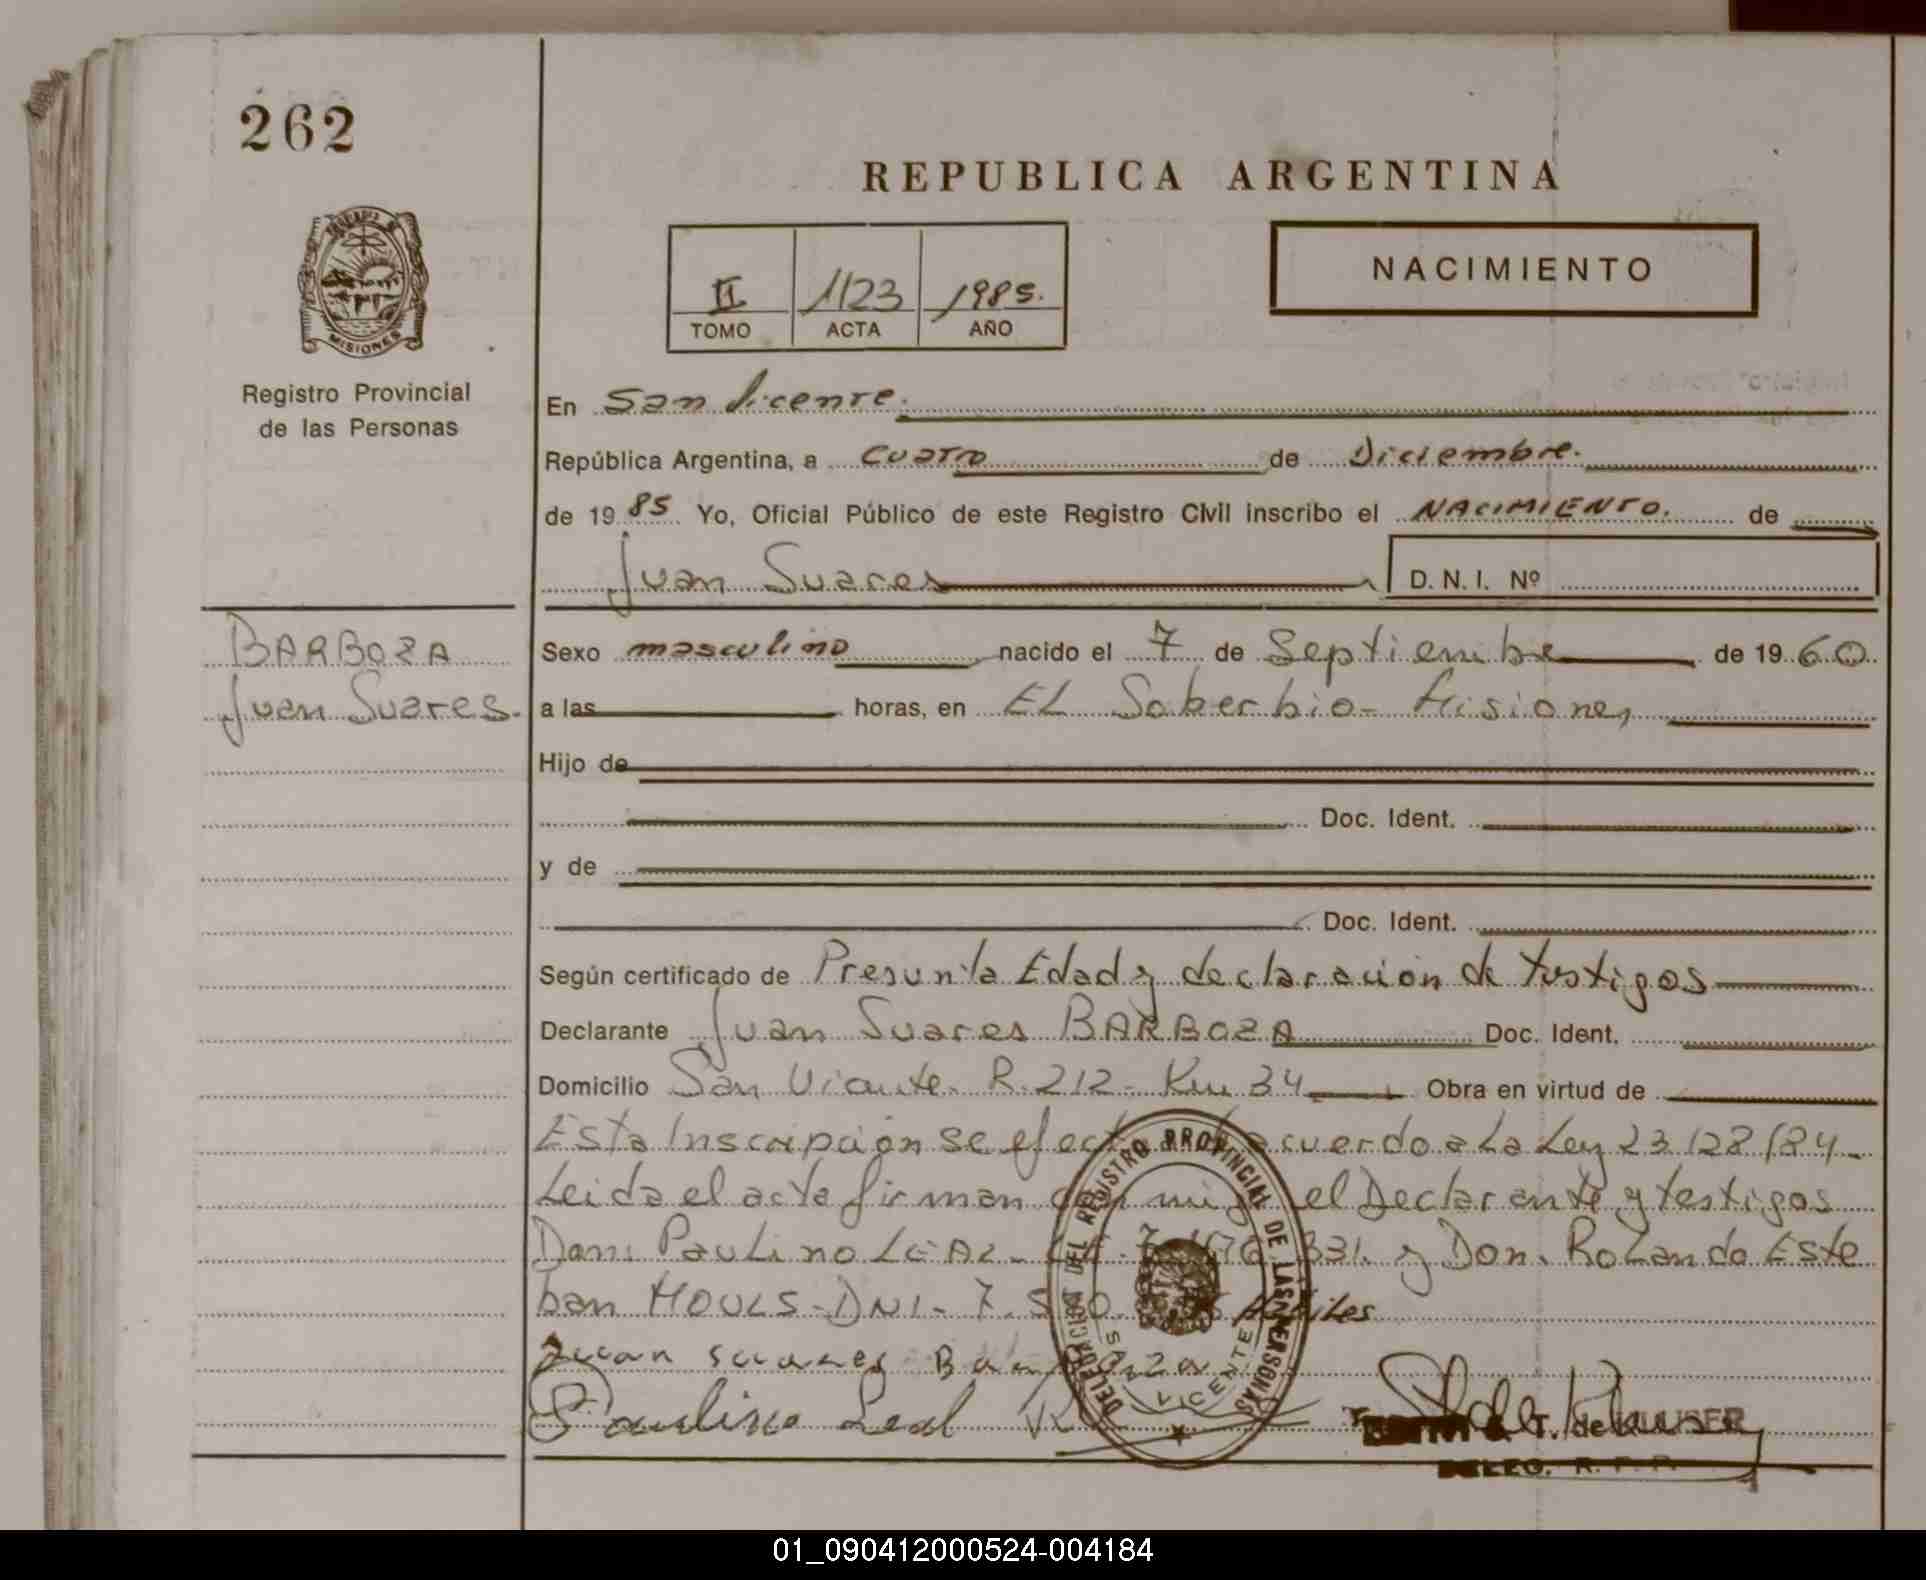 262
REPUBLICA ARGENTINA
MISIONES
Registro Provincial
de las Personas
II 1123 1985.
TOMO ACTA AÑO
NACIMIENTO
En San Vicente.
República Argentina, a Cuatro de Diciembre.
de 19 85 Yo, Oficial Público de este Registro Civil inscribo el NACIMIENTO. de
Juan Suares D.N.I. Nº
BARBOZA
Juan Suares.
Sexo masculino nacido el 7 de Septiembre de 19 60
a las horas, en EL Soberbio - Misiones
Hijo de
Doc. Ident.
y de
Doc. Ident.
Según certificado de Presunta Edad y declaración de testigos
Declarante Juan Suares BARBOZA Doc. Ident.
Domicilio San Vicente. R. 212 - Km 34 Obra en virtud de
Esta Inscripción se acuerdo a La Ley 23128/84 -
Leida el acta firman con mi el Declarante y testigos
Don: Paulino LEAL - 331. y Don. Rolando Este
ban HOULS - DNI - 7. Hábiles
Juan suares Barboza
Paulino Leal
DELEGACION DEL REGISTRO PROVINCIAL DE LAS PERSONAS
SAN VICENTE
T. de KLAUSER
DELEG. R. P. P.
01_090412000524-004184